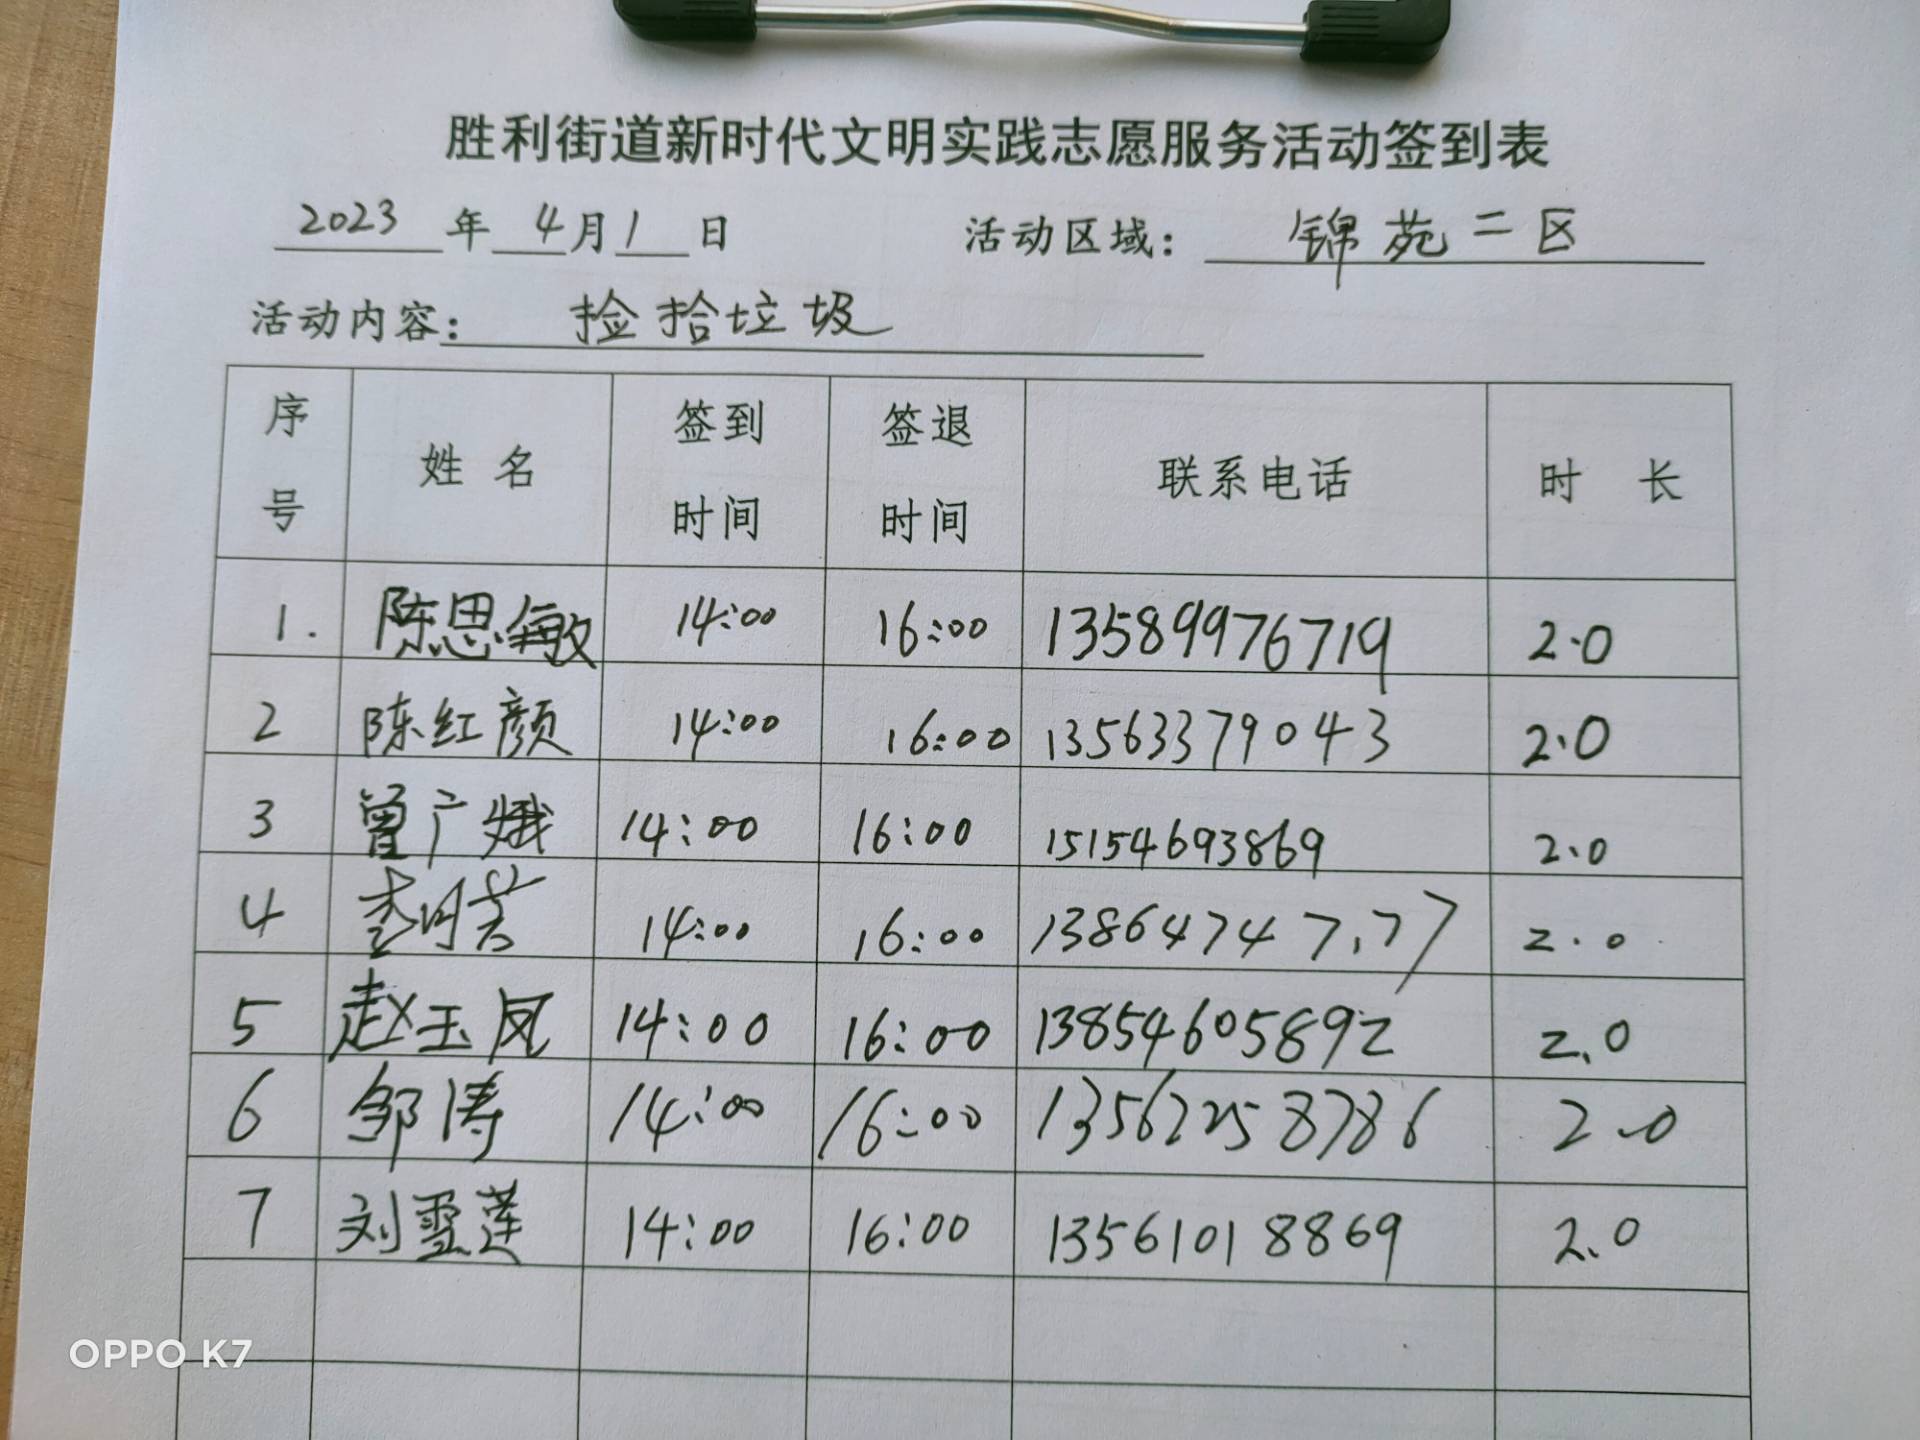 胜利街道新时代文明实践志愿服务活动签到表
2023 年 4月1 日 活动区域: 锦苑二区
活动内容: 捡拾垃圾
序号 姓名 签到时间 签退时间 联系电话 时长
1. 陈思敏 14:00 16:00 13589976719 2.0
2 陈红颜 14:00 16:00 13563379043 2.0
3 曾广娥 14:00 16:00 15154693869 2.0
4 14:00 16:00 2.0
5 赵玉凤 14:00 16:00 13854605892 2.0
6 邹涛 14:00 16:00 13562258786 2.0
7 刘雪莲 14:00 16:00 13561018869 2.0
OPPO K7